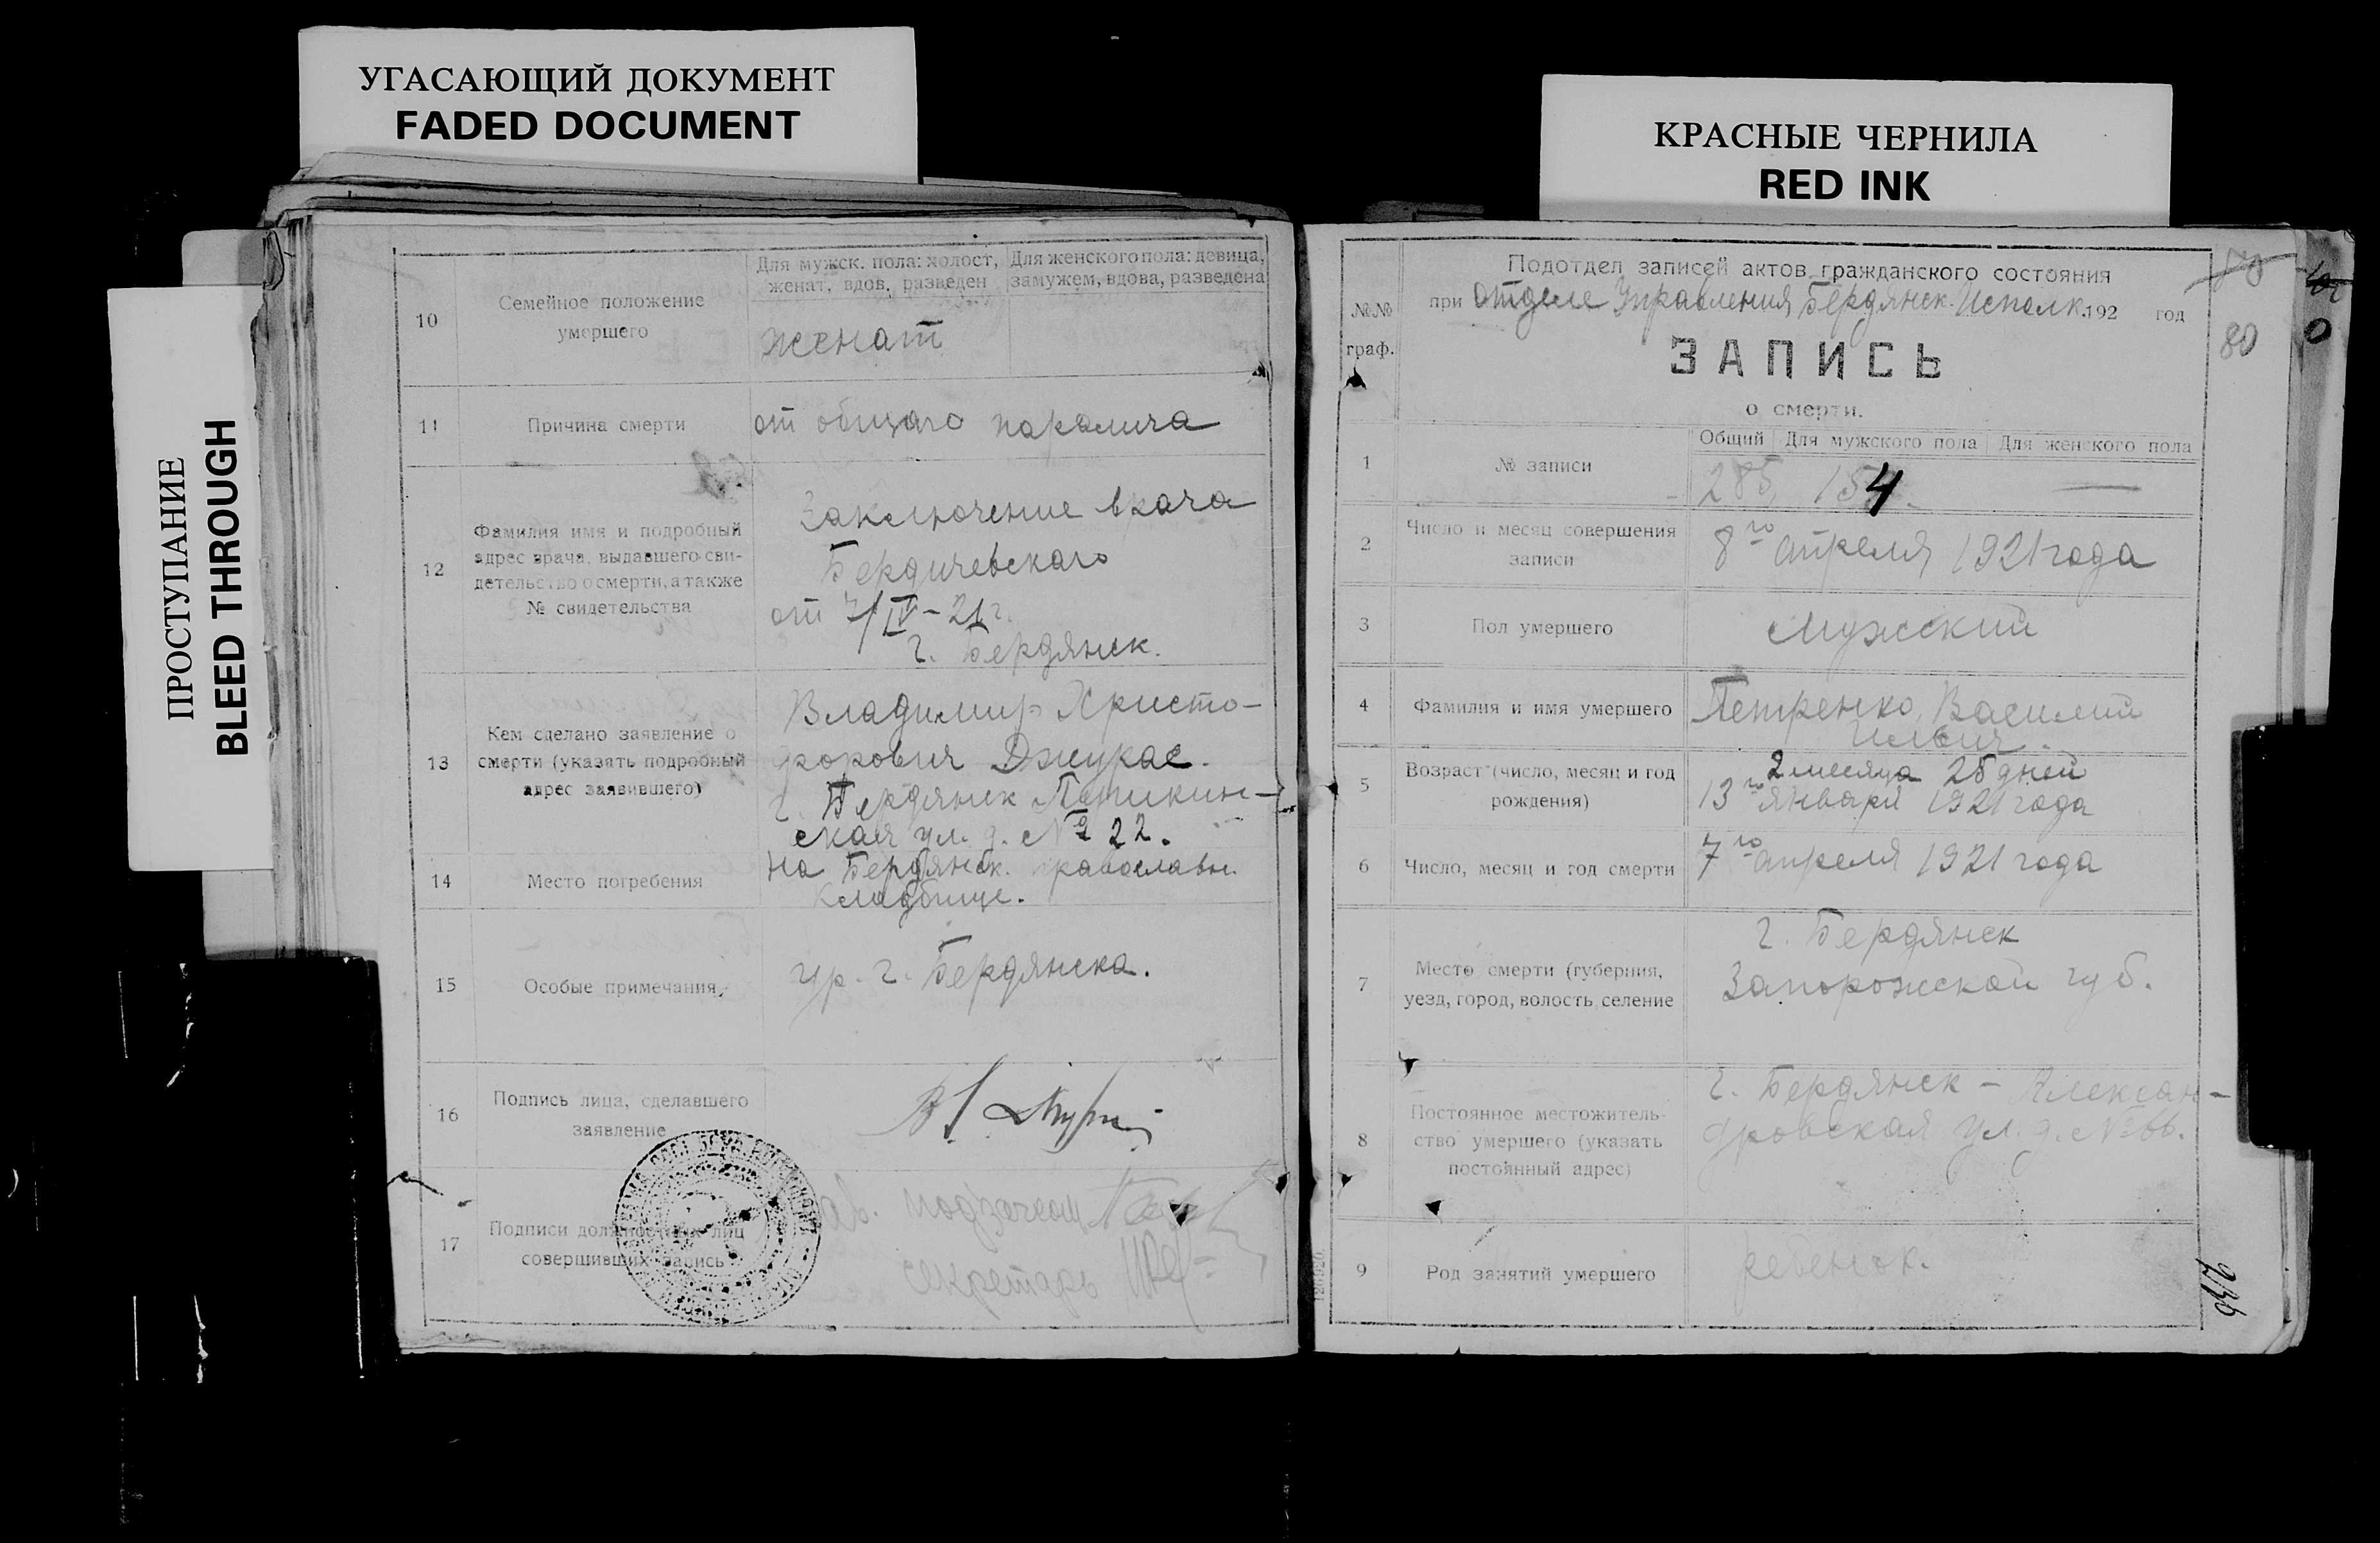 УГАСАЮЩИЙ ДОКУМЕНТ
FADED DOCUMENT
КРАСНЫЕ ЧЕРНИЛА
RED INK
ПРОСТУПАНИЕ
BLEED THROUGH
10
Семейное положение
умершего
Для мужск. пола: холост,
женат, вдов, разведен
Для женского пола: девица,
замужем, вдова, разведена
женат
11
Причина смерти
от общаго паралича
12
Фамилия имя и подробный
адрес врача, выдавшего сви-
детельство о смерти, а также
№ свидетельства
Заключение врача
Бердичевскаго
от 7/IV-21г.
г. Бердянск.
13
Кем сделано заявление о
смерти (указать подробный
адрес заявившего)
Владимир Христо-
форович Джукас.
г. Бердянск
ская ул. д. № 22.
14
Место погребения
на Бердянск. православн.
кладбище.
15
Особые примечания
ур. г. Бердянска.
16
Подпись лица, сделавшего
заявление
17
Подписи должностных лиц
совершивших запись
секретарь
№№
граф.
Подотдел записей актов гражданского состояния
при отделе Управления Бердянск. Исполк. 192 год
50
80
ЗАПИСЬ
о смерти.
1
№ записи
Общий Для мужского пола Для женского пола
285 154. —
2
Число и месяц совершения
записи
8го апреля 1921 года
3
Пол умершего
Мужский
4
Фамилия и имя умершего
Петренко, Василий
Ильич.
5
Возраст (число, месяц и год
рождения)
2 месяца 25 дней
13го января 1921 года
6
Число, месяц и год смерти
7го апреля 1921 года
7
Место смерти (губерния,
уезд, город, волость, селение
г. Бердянск
Запорожской губ.
8
Постоянное местожитель-
ство умершего (указать
постоянный адрес)
г. Бердянск - Алексан-
дровская ул. д. № 66.
9
Род занятий умершего
ребенок.